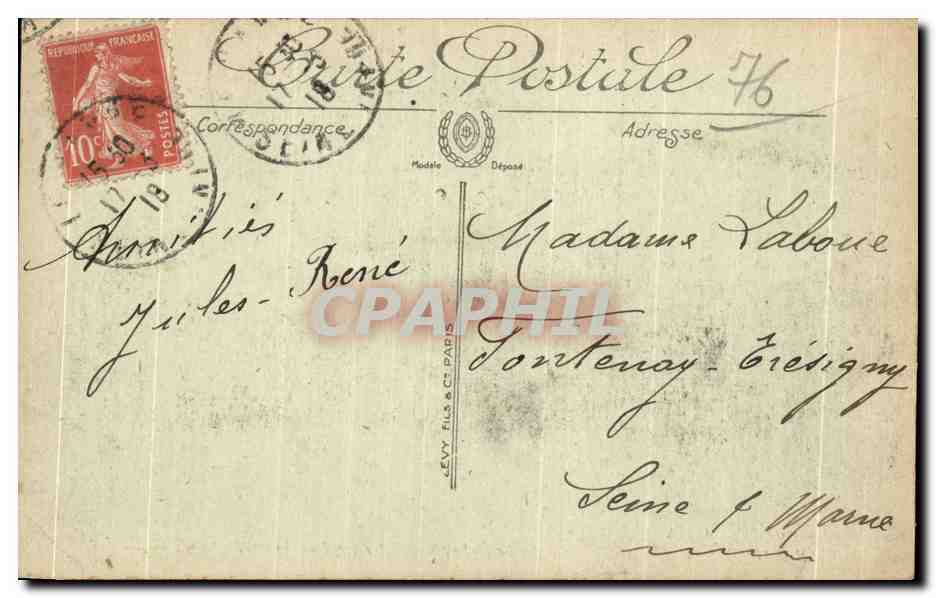 REPUBLIQUE FRANÇAISE
10c POSTES
15 30
17
18
SEINE
Carte Postale
76
Correspondance
Adresse
Modèle Déposé
Amitiés
Jules - René
LEVY FILS & Cº PARIS
Madame Laboue
Fontenay - Trésigny
Seine & Marne
CPAPHIL